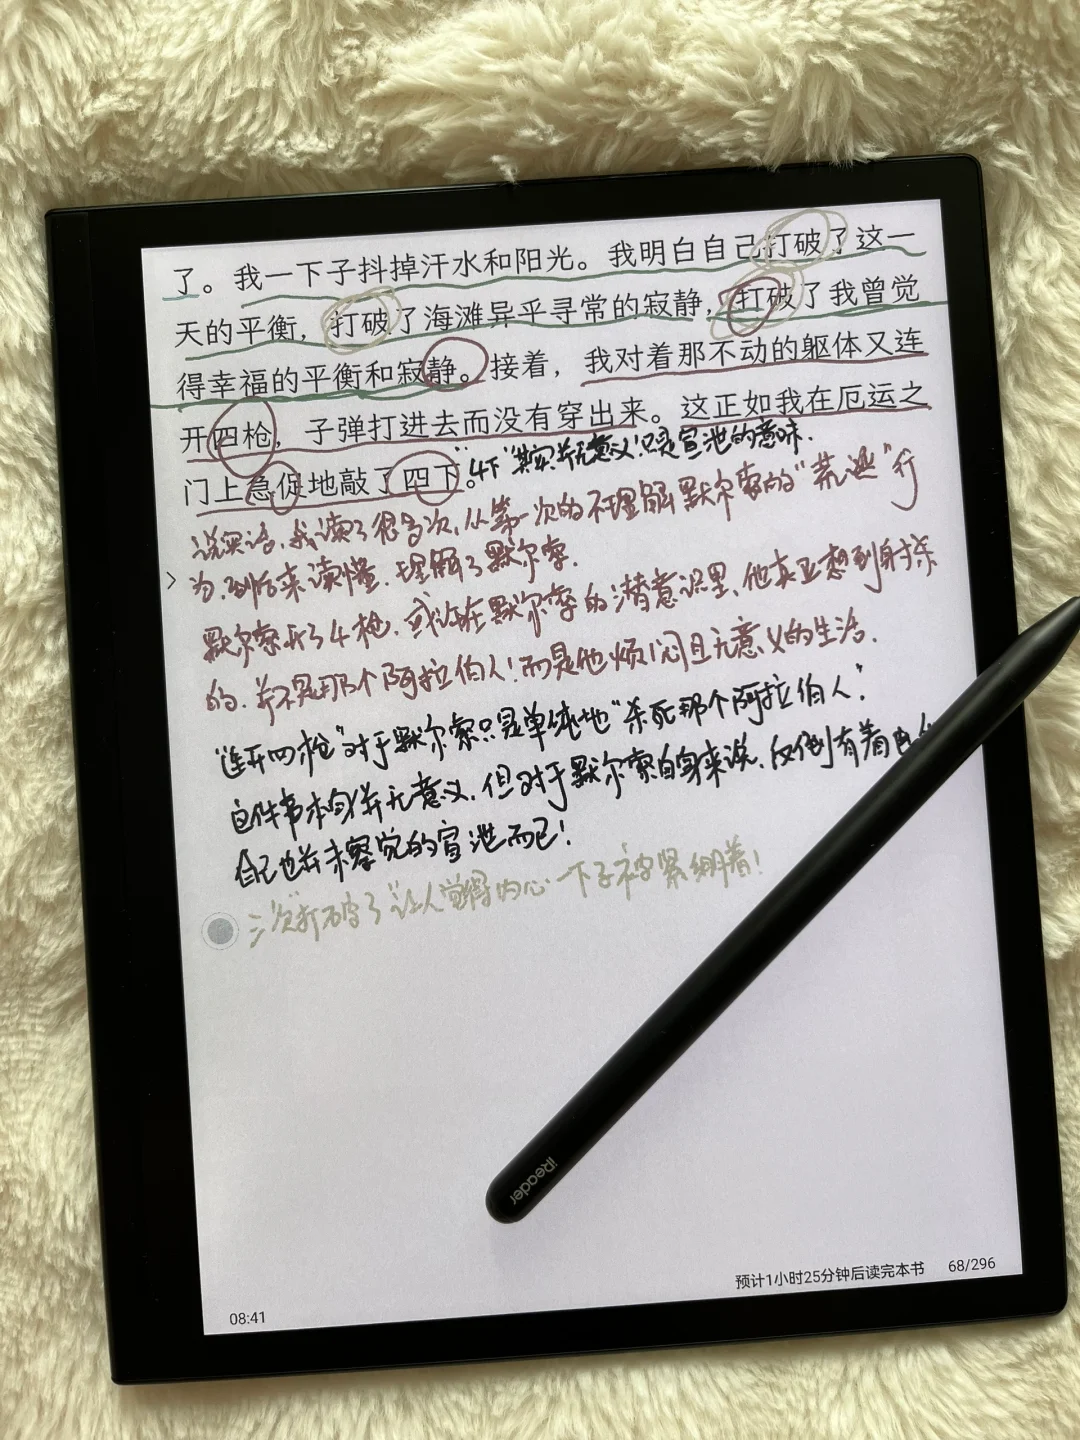 了。我一下子抖掉汗水和阳光。我明白自己打破了这一
天的平衡，打破了海滩异乎寻常的寂静，打破了我曾觉
得幸福的平衡和寂静。接着，我对着那不动的躯体又连
开四枪，子弹打进去而没有穿出来。这正如我在厄运之
门上急促地敲了四下。
"4下"其实并无意义！只是宣泄的意味.
说实话，我读了很多次，从第一次的不理解默尔索的"荒诞"行
为，到后来读懂、理解了默尔索.
默尔索开了4枪，或许在默尔索的潜意识里，他真正想到射杀
的，并不是那个阿拉伯人！而是他烦闷且无意义的生活.
"连开四枪"对于默尔索只是单纯地"杀死那个阿拉伯人"
这件事本身并无意义，但对于默尔索自身来说，反倒有着
自己也并未察觉的宣泄而已！
三次"打破了"让人觉得内心一下子被紧绷着！
iReader
预计1小时25分钟后读完本书 68/296
08:41